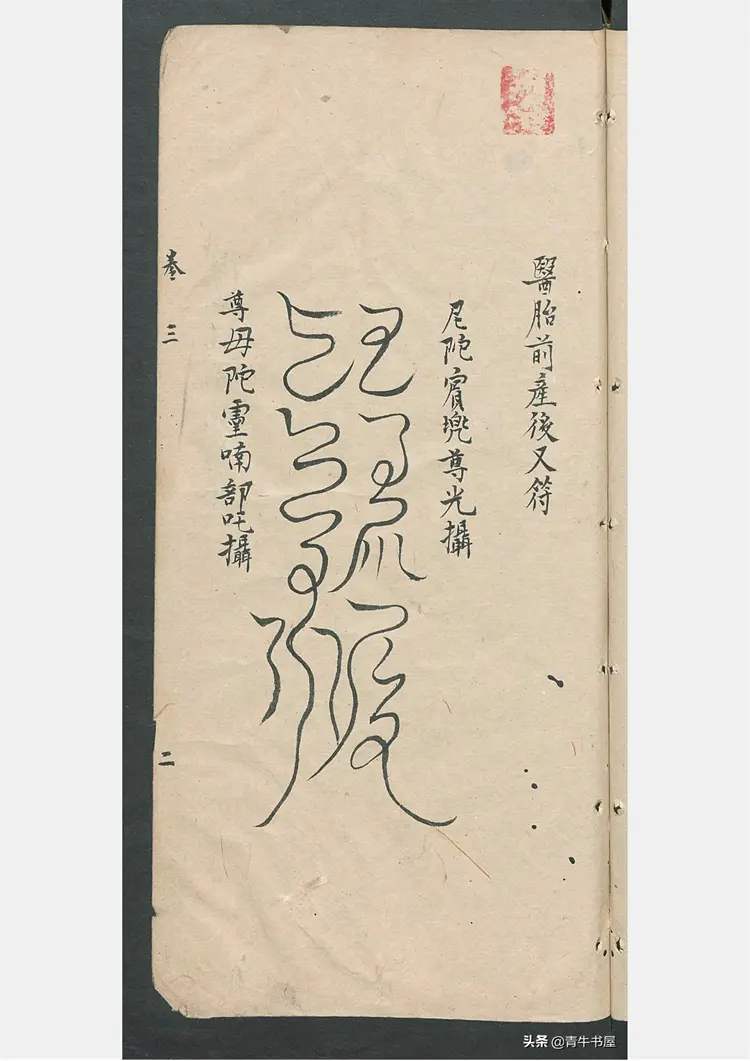 醫胎前產後又符
尼陀賓兠尊光攝
尊毋陀靈喃部吒攝
卷三
二
头条 @青牛书屋